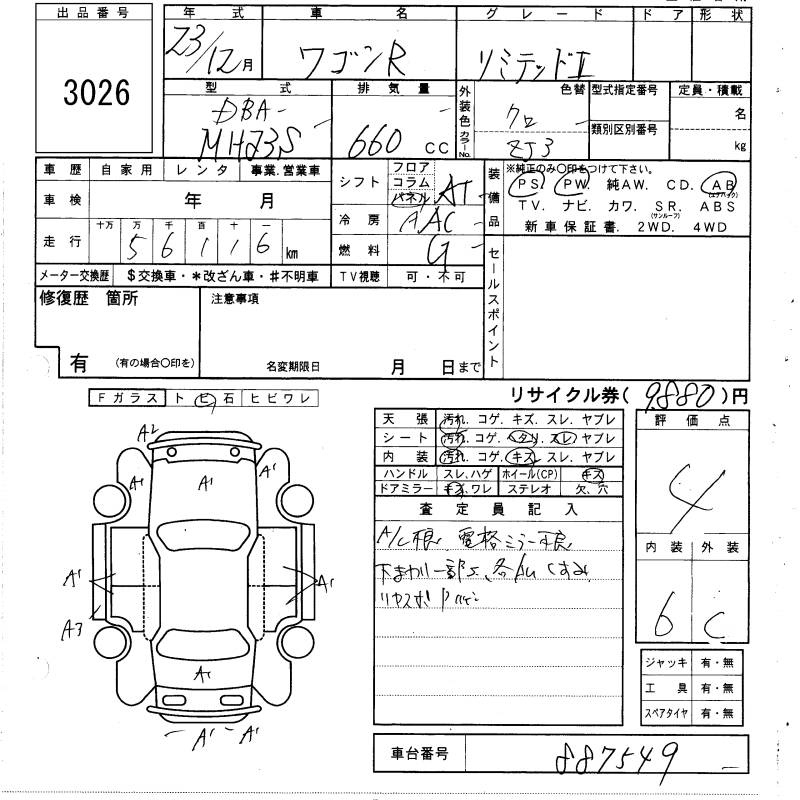 出品番号
3026
年式 車名 グレード ドア 形状
23/12月 ワゴンR リミテッドⅡ
型式 排気量 外装色 カラーNo. 色替 型式指定番号 定員・積載
DBA-
MH23S 660 CC クロ ZJ3 類別区別番号 名 kg
車歴 自家用 レンタ 事業.営業車
車検 年 月
走行 十万 万 千 百 十 一
5 6 1 1 6 km
シフト フロア コラム パネル AT
冷房 AAC
燃料 G
装備品 ※純正のみ〇印をつけて下さい。
PS. PW. 純AW. CD. AB (エアバック)
TV. ナビ. カワ. SR. (サンルーフ) ABS
新車保証書. 2WD. 4WD
メーター交換歴 $交換車・*改ざん車・#不明車 TV視聴 可・不可
セールスポイント
修復歴 箇所 注意事項
有 (有の場合〇印を) 名変期限日 月 日まで
リサイクル券( 9880 )円
Fガラス トビ石 ヒビワレ
天張 汚れ. コゲ. キズ. スレ. ヤブレ
シート 汚れ. コゲ. ヘタリ. スレ. ヤブレ
内装 汚れ. コゲ. キズ. スレ. ヤブレ
ハンドル スレ.ハゲ ホイール(CP) キズ
ドアミラー キズ.ワレ ステレオ 欠.穴
評価点
4
内装 外装
6 C
査定員記入
A/C 電格ミラー不良
下まわり一部S、各 くすみ
A2
A1 A1 A1
A1 A1
A3
A1
A1 A1
ジャッキ 有・無
工具 有・無
スペアタイヤ 有・無
車台番号 887549